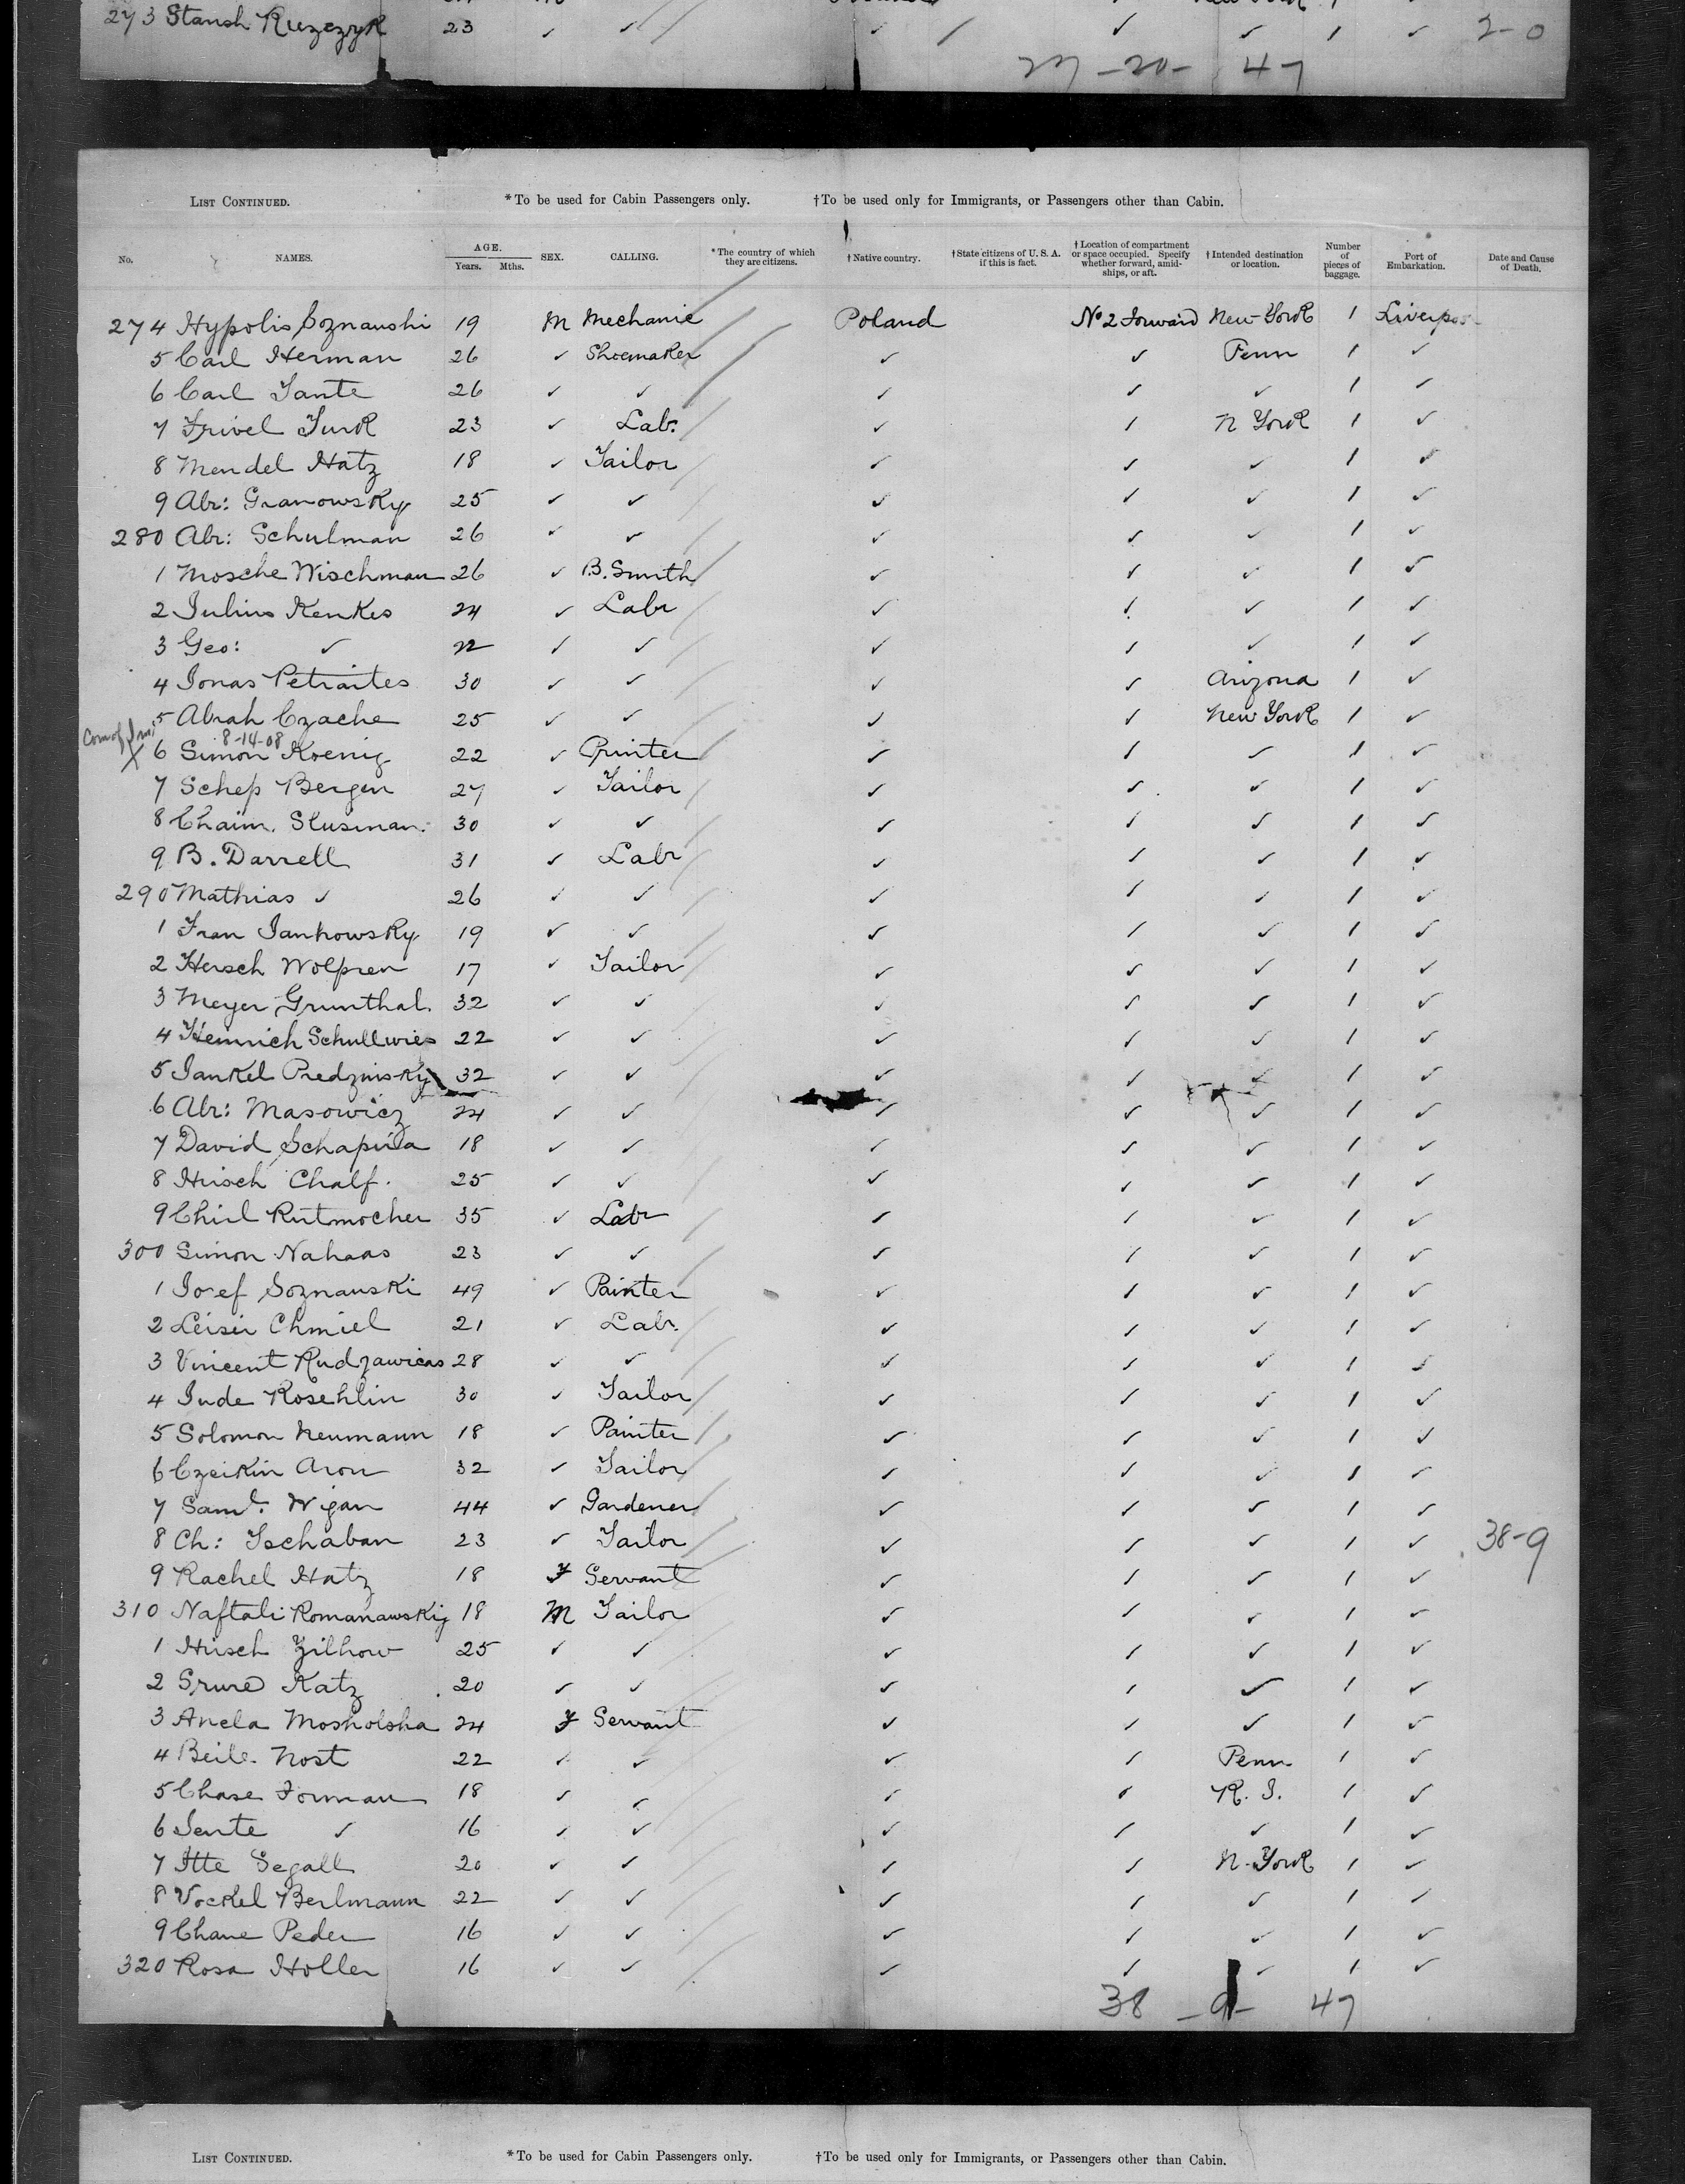 273 Stansh Ruzezyk 23 ✓ ✓ ✓ ✓ ✓ 1 ✓ 2-0
27-20- 47
LIST CONTINUED. *To be used for Cabin Passengers only. †To be used only for Immigrants, or Passengers other than Cabin.
No. NAMES. AGE. Years. Mths. SEX. CALLING. *The country of which they are citizens. †Native country. †State citizens of U. S. A. if this is fact. †Location of compartment or space occupied. Specify whether forward, amidships, or aft. †Intended destination or location. Number of pieces of baggage. Port of Embarkation. Date and Cause of Death.
274 Hypolis Soznanski 19 M Mechanic Poland No 2 Forward New York 1 Liverpool
5 Carl Herman 26 ✓ Shoemaker ✓ ✓ Penn 1 ✓
6 Carl Tante 26 ✓ ✓ ✓ ✓ ✓ 1 ✓
7 Frivel Turk 23 ✓ Labr ✓ ✓ N York 1 ✓
8 Mendel Hatz 18 ✓ Tailor ✓ ✓ ✓ 1 ✓
9 Abr: Granowsky 25 ✓ ✓ ✓ ✓ ✓ 1 ✓
280 Abr: Schulman 26 ✓ ✓ ✓ ✓ ✓ 1 ✓
1 Mosche Wischman 26 ✓ B. Smith ✓ ✓ ✓ 1 ✓
2 Julius Kenkes 24 ✓ Labr ✓ ✓ ✓ 1 ✓
3 Geo: ✓ 22 ✓ ✓ ✓ ✓ ✓ 1 ✓
4 Jonas Petraites 30 ✓ ✓ ✓ ✓ Arizona 1 ✓
5 Abrah Czache 25 ✓ ✓ ✓ ✓ New York 1 ✓
Com of Im: 8-14-08
X 6 Simon Koenig 22 ✓ Printer ✓ ✓ ✓ 1 ✓
7 Schep Bergen 27 ✓ Tailor ✓ ✓ ✓ 1 ✓
8 Chaim. Slusman. 30 ✓ ✓ ✓ ✓ ✓ 1 ✓
9 B. Darrell 31 ✓ Labr ✓ ✓ ✓ 1 ✓
290 Mathias ✓ 26 ✓ ✓ ✓ ✓ ✓ 1 ✓
1 Fran Jankowsky 19 ✓ ✓ ✓ ✓ ✓ 1 ✓
2 Hersch Wolpren 17 ✓ Tailor ✓ ✓ ✓ 1 ✓
3 Meyer Grunthal 32 ✓ ✓ ✓ ✓ ✓ 1 ✓
4 Heinrich Schullwies 22 ✓ ✓ ✓ ✓ ✓ 1 ✓
5 Jankel Predzinsky 32 ✓ ✓ ✓ ✓ ✓ 1 ✓
6 Abr: Masowicz 24 ✓ ✓ ✓ ✓ ✓ 1 ✓
7 David Schapira 18 ✓ ✓ ✓ ✓ ✓ 1 ✓
8 Hirsch Chalf. 25 ✓ ✓ ✓ ✓ ✓ 1 ✓
9 Chiel Rutmocher 35 ✓ Labr ✓ ✓ ✓ 1 ✓
300 Simon Nahaas 23 ✓ ✓ ✓ ✓ ✓ 1 ✓
1 Josef Soznanski 49 ✓ Painter ✓ ✓ ✓ 1 ✓
2 Leiser Chmiel 21 ✓ Labr. ✓ ✓ ✓ 1 ✓
3 Vincent Rudzawicas 28 ✓ ✓ ✓ ✓ ✓ 1 ✓
4 Jude Rosehlin 30 ✓ Tailor ✓ ✓ ✓ 1 ✓
5 Solomon Neumann 18 ✓ Painter ✓ ✓ ✓ 1 ✓
6 Czeikin Aron 32 ✓ Tailor ✓ ✓ ✓ 1 ✓
7 Saml. Wigan 44 ✓ Gardener ✓ ✓ ✓ 1 ✓
8 Ch: Tschaban 23 ✓ Tailor ✓ ✓ ✓ 1 ✓ 38-9
9 Rachel Hatz 18 F Servant ✓ ✓ ✓ 1 ✓
310 Naftali Romanawskij 18 M Tailor ✓ ✓ ✓ 1 ✓
1 Hirsch Zilhow 25 ✓ ✓ ✓ ✓ ✓ 1 ✓
2 Srure Katz 20 ✓ ✓ ✓ ✓ ✓ 1 ✓
3 Anela Mosholska 24 F Servant ✓ ✓ ✓ 1 ✓
4 Beile Nost 22 ✓ ✓ ✓ ✓ Penn 1 ✓
5 Chase Forman 18 ✓ ✓ ✓ ✓ R. I. 1 ✓
6 Jente ✓ 16 ✓ ✓ ✓ ✓ ✓ 1 ✓
7 Itte Segall 20 ✓ ✓ ✓ ✓ N. York 1 ✓
8 Vockel Berlmann 22 ✓ ✓ ✓ ✓ ✓ 1 ✓
9 Chane Peder 16 ✓ ✓ ✓ ✓ ✓ 1 ✓
320 Rosa Holler 16 ✓ ✓ ✓ ✓ ✓ 1 ✓
38 - 9 - 47
LIST CONTINUED. *To be used for Cabin Passengers only. †To be used only for Immigrants, or Passengers other than Cabin.